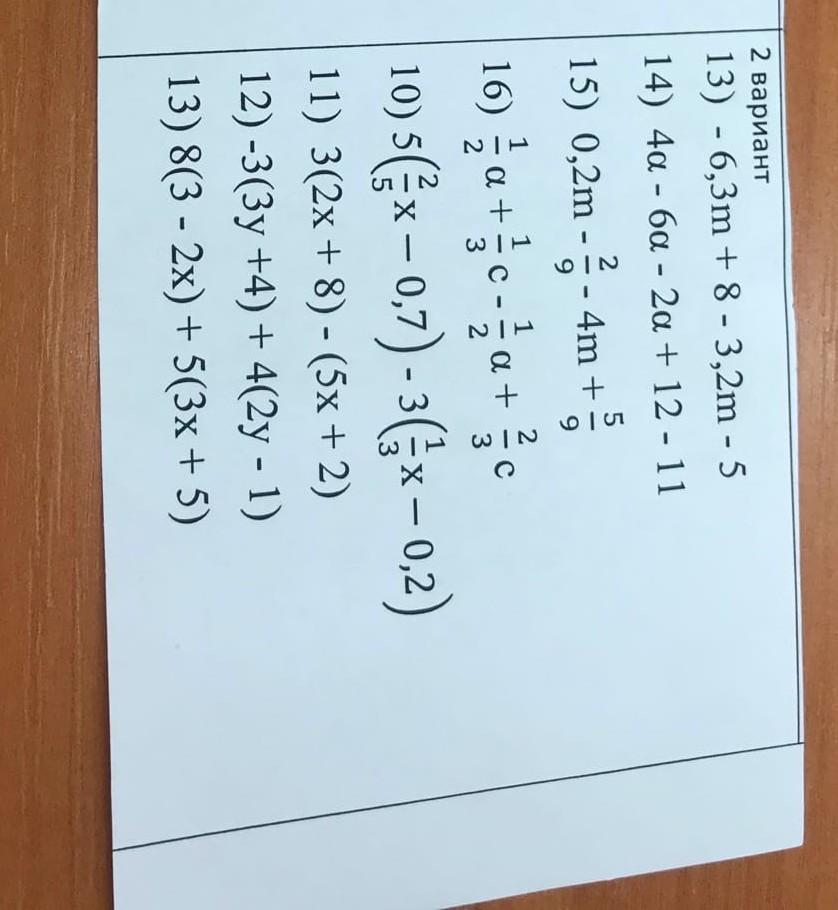 2 вариант
13) - 6,3m + 8 - 3,2m - 5
14) 4α - 6α - 2α + 12 - 11
15) 0,2m - 2/9 - 4m + 5/9
16) 1/2 α + 1/3 c - 1/2 α + 2/3 c
10) 5(2/5 x – 0,7) - 3(1/3 x – 0,2)
11) 3(2x + 8) - (5x + 2)
12) -3(3y +4) + 4(2y - 1)
13) 8(3 - 2x) + 5(3x + 5)